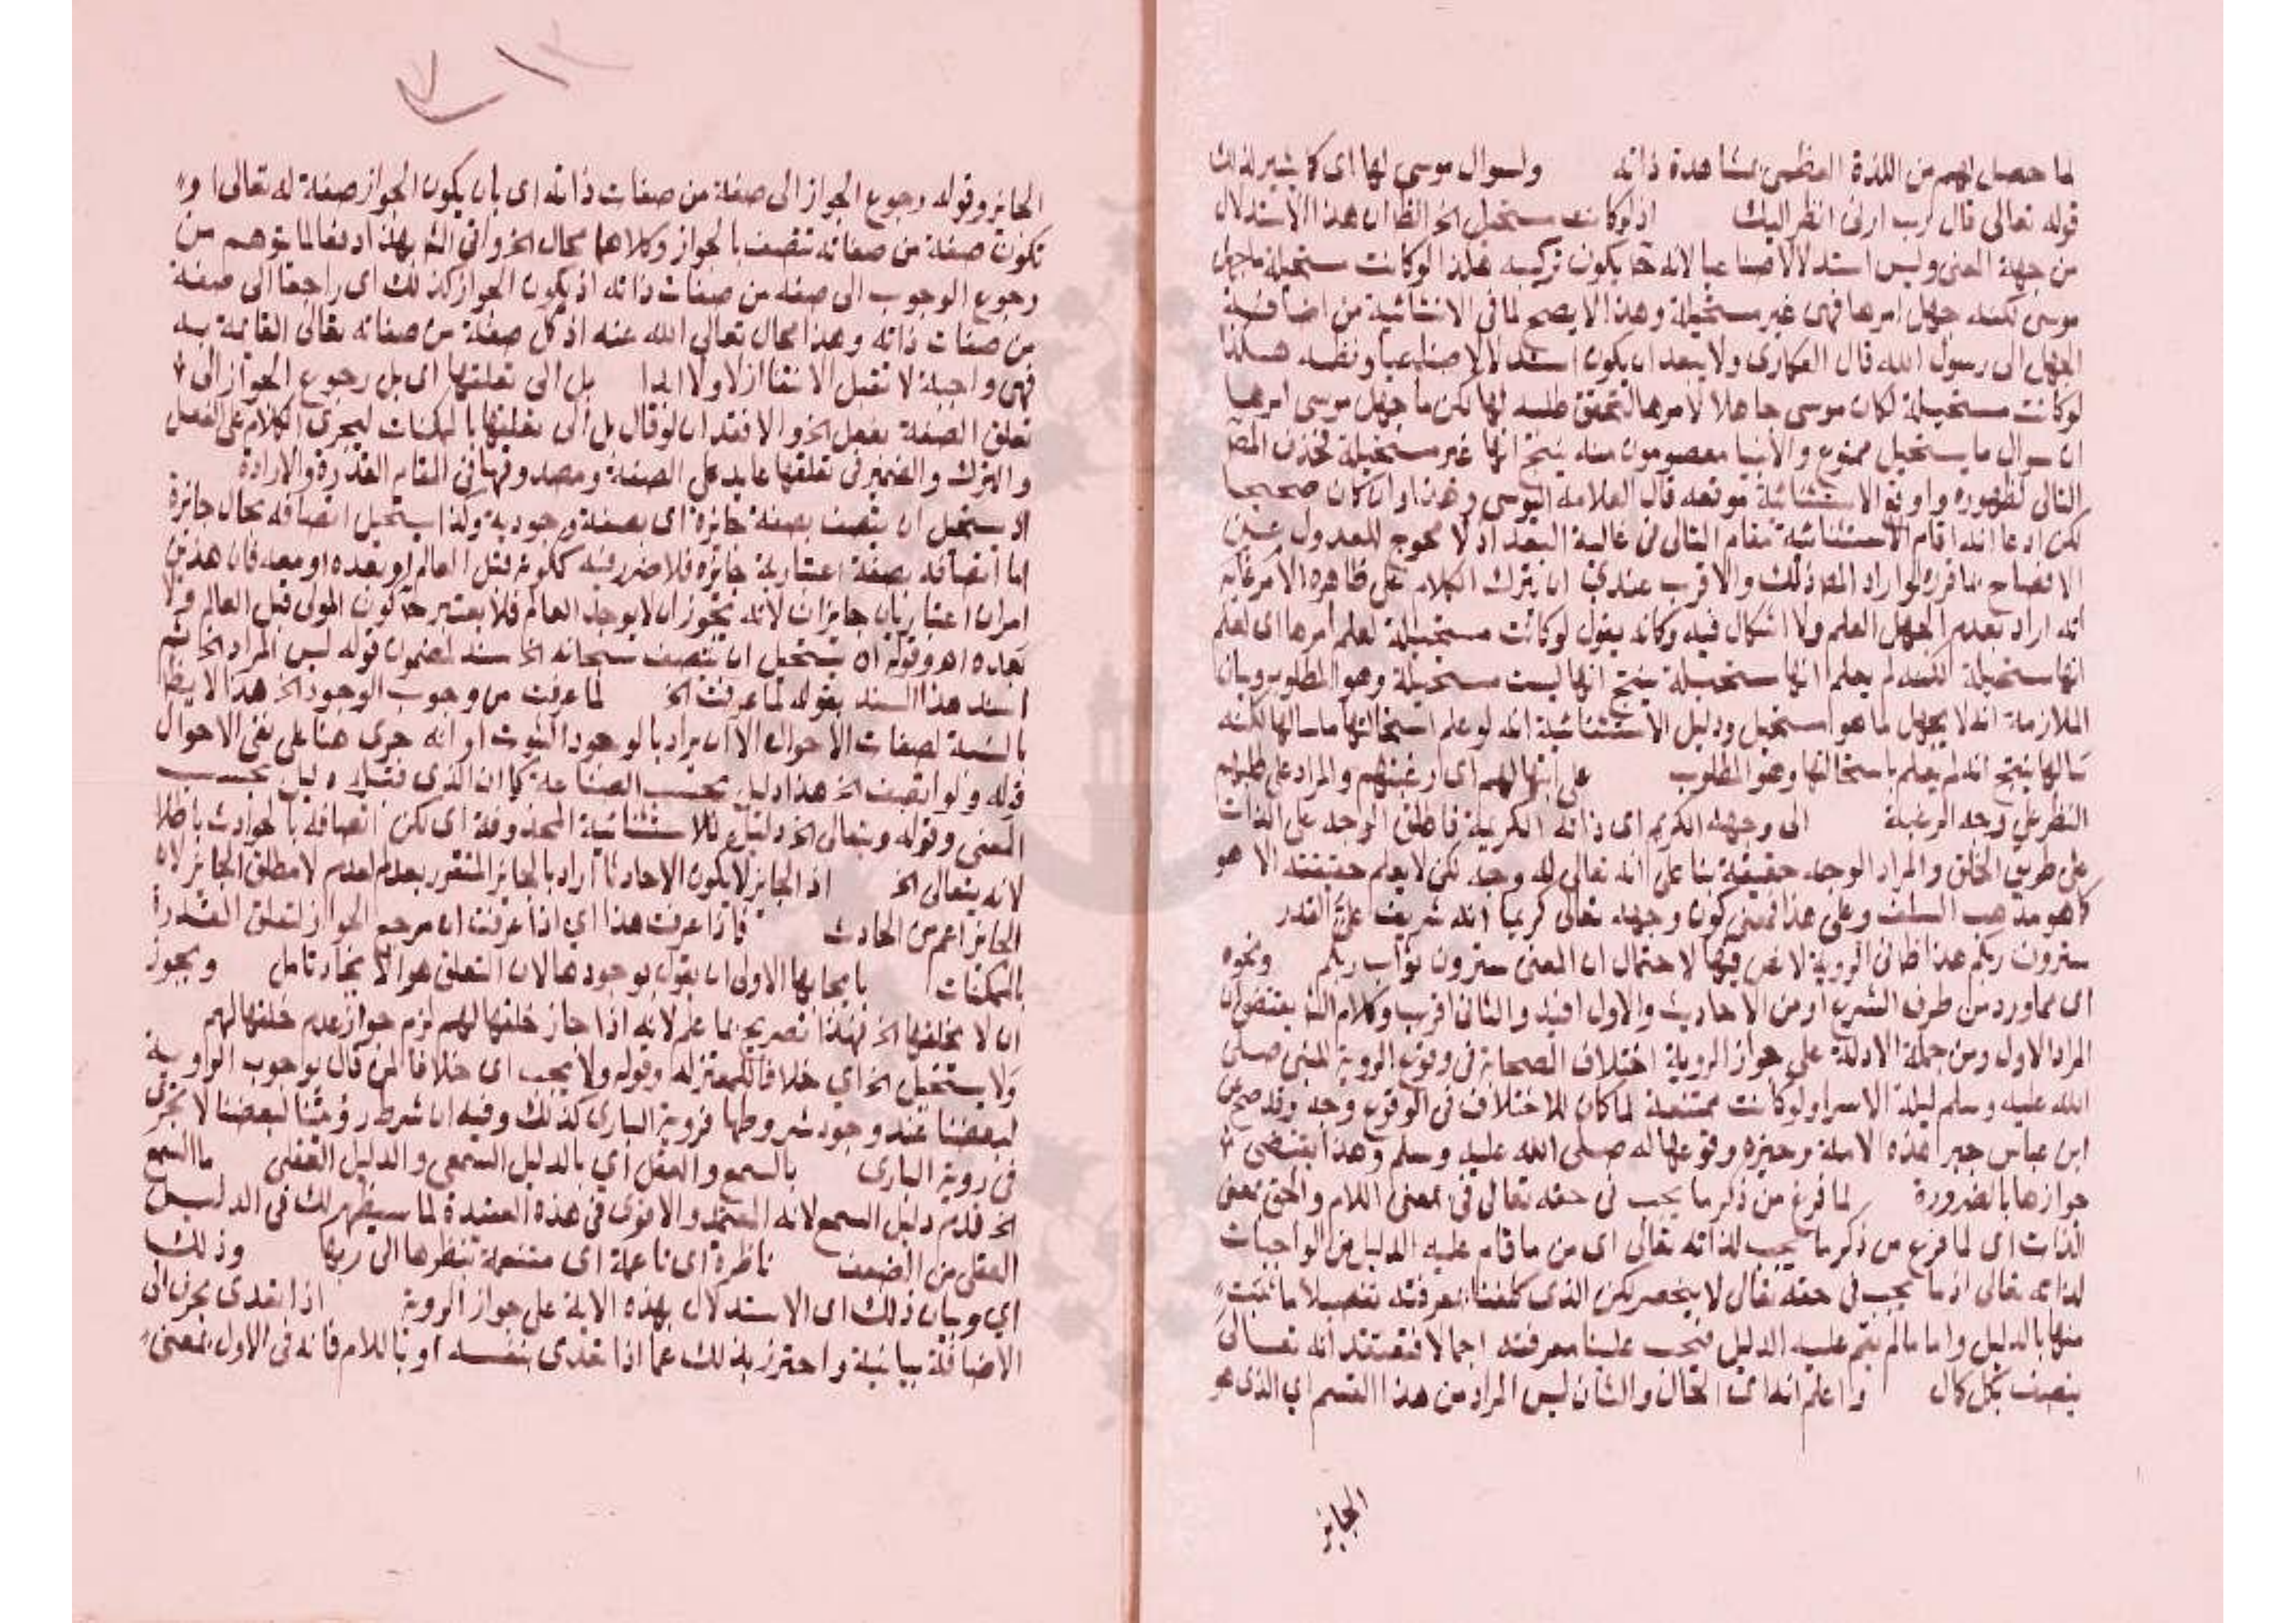 لما حصل لهم من اللذة العظمى بمشاهدة ذاته ولسوال موسى لها اى كا يشير لذلك
قوله تعالى قال رب ارنى انظر اليك اذ لو كانت مستحيل الخ الظ ان هذا الاستدلال
من جهة المعنى وليس استدلالا صناعيا لانه ح يكون تركيبه هكذا لو كانت مستحيلة ما جهل
موسى لكنه جهل امرها فهى غير مستحيلة وهذا لا يصح لما فى الاستثنائية من اضافة
الجهل الى رسول الله قال العكارى ولا يبعد ان يكون استدلالا صناعيا ونظمه هكذا
لو كانت مستحيلة لكان موسى جاهلا لامرها لتحقق طلبه لها لكن ما جهل موسى امرها
ان سوال ما يستحيل ممنوع والانبيا معصومون منه ينتج انها غير مستحيلة فحذف المص
التالى لظهوره واوقع الاستثنائية موقعه قال العلامة اليوسى وهذا وان كان صحيحا
لكن ادعا انه اقام الاستثنائية مقام التالى فى غاية البعد اذ لا محوج للعدول عن
الافصاح بما قرره لو اراد المص ذلك والاقرب عندى ان يترك الكلام على ظاهره الامر غايه
انه اراد بعدم الجهل العلم ولا اشكال فيه وكانه يقول لو كانت مستحيلة لعلم امرها اى لعلم
انها مستحيلة لكنه لم يعلم انها مستحيلة ينتج انها ليست مستحيلة وهو المطلوب وبيان
الملازمة انه لا يجهل ما هو مستحيل ودليل الاستثنائية انه لو علم استحالتها ما سالها لكنه
سالها ينتج انه لم يعلم باستحالتها وهو المطلوب على ابتهالهم اى رغبتهم والمراد على طلبهم
النظر على وجه الرغبة الى وجهه الكريم اى ذاته الكريمة فاطلق الوجه على الذات
على طريق الخلق والمراد الوجه حقيقة بنا على انه تعالى له وجه لكن لا يعلم حقيقته الا هو
كا هو مذهب السلف وعلى هذا فمعنى كون وجهه تعالى كريما انه شريف على القدر
سترون ربكم هذا ظ فى الروية لا نص فيها لاحتمال ان المعنى سترون ثواب ربكم ونحوه
اى مما ورد من طرف الشرع او من الاحاديث والاول افيد والثانى اقرب وكلام الش يقتضى ان
المراد الاول ومن جملة الادلة على جواز الروية اختلاف الصحابة فى وقوع الروية للنبى صلى
الله عليه وسلم ليلة الاسرا ولو كانت ممتنعة لما كان للاختلاف فى الوقوع وجه وقد صح عن
ابن عباس حبر هذه الامة وغيره وقوعها له صلى الله عليه وسلم وهذا يقتضى
جوازها بالضرورة لما فرغ من ذكر ما يجب فى حقه تعالى فى بمعنى اللام والحق بمعنى
الذات اى لما فرغ من ذكر ما يجب لذاته تعالى اى من ما قام عليه الدليل من الواجبات
لذاته تعالى اذ ما يجب فى حقه تعالى لا ينحصر لكن الذى كلفنا بمعرفته تفصيلا ما ثبت
منها بالدليل واما ما لم يقم عليه الدليل فيجب علينا معرفته اجمالا فنعتقد انه تعالى
يتصف بكل كال واعلم انه اى الحال والشان ليس المراد من هذا القسم اي الذى هو
الجايز
الجايز وقوله رجوع الجواز الى صفة من صفات ذاته اى بان يكون الجواز صفة له تعالى او
تكون صفة من صفاته تتصف بالجواز وكلاهما محال الخ واتى الش بهذا دفعا لما يتوهم من
رجوع الوجوب الى صفة من صفات ذاته اذ يكون الجواز كذلك اى راجعا الى صفة
من صفات ذاته وهذا محال تعالى الله عنه اذ كل صفة من صفاته تعالى القائمة به
فهى واجبة لا تقبل الانتفا ازلا ولا ابدا بل الى تعلقها اى بل رجوع الجواز الى
تعلق الصفة بفعل الخ والا فقد ان لو قال بل الى تعلقها بالممكنات ليجرى الكلام على الفعل
والترك والضمير فى تعلقها عايد على الصفة ومصدوقها فى المقام القدرة والارادة
اذ يستحيل ان يتصف بصفة جايزة اى بصفة وجودية وكذا يستحيل اتصافه بحال جايزة
اما اتصافه بصفة اعتبارية جايزه فلا ضرر فيه ككونه قبل العالم او بعده او معه فان هذين
امران اعتباريان جايزان لانه يجوز ان لا يوجد العالم فلا يعتبر ح كون المولى قبل العالم ولا
بعده اهـ وقوله اذ يستحيل ان يتصف سبحانه الخ سند لمضمون قوله ليس المراد الخ ثم
اسند هذا السند بقوله لما عرفت الخ لما عرفت من وجوب الوجود الخ هذا لا يظ
بالنسبة لصفات الاحوال الا ان يراد بالوجود الثبوت او انه جرى هنا على نفى الاحوال
قوله ولو اتصف الخ هذا دليل بحسب الصناعة كا ان الذى قبله دليل بحسب
المعنى وقوله ويتعالى الخ دليل للاستثنائية المحذوفة اى لكن اتصافه بالحوادث باطل
لانه يتعالى الخ اذ الجايز لا يكون الا حادثا اراد بالجايز المتقرر بعدم العدم لا مطلق الجايز لان
الجايز اعم من الحادث فاذا عرفت هذا اي اذا عرفت ان مرجع الجواز لتعلق القدرة
بالممكنات بايجابها الاولى ان يقول بوجودها لان التعلق هو الايجاد تامل ويجوز
ان لا يخلقها الخ فهذا تصريح بما علم لانه اذا جاز خلقها لهم لزم جواز عدم خلقها لهم
ولا يستحيل الخ اي خلافا للمعتزله وقوله ولا يجب اى خلافا لمن قال بوجوب الروية
لبعضنا عند وجود شروطها فروية البارى كذلك وفيه ان شرط رؤيتنا لبعضنا لا تجرى
فى روية البارى بالسمع والعقل أي بالدليل السمعى والدليل العقلى ما السمع
الخ قدم دليل السمع لانه المعتمد والاقوى فى هذه العقيدة لما سيظهر لك فى الدليل
العقلى من الضعف ناظرة اى ناعمة اى متنعمة بنظرها الى ربها وذلك
اي وبيان ذلك اى الاستدلال بهذه الاية على جواز الروية اذا تعدى بحرف الى
الاضافة بيانية واحترز بذلك عما اذا تعدى بنفسه او باللام فانه فى الاول بمعنى